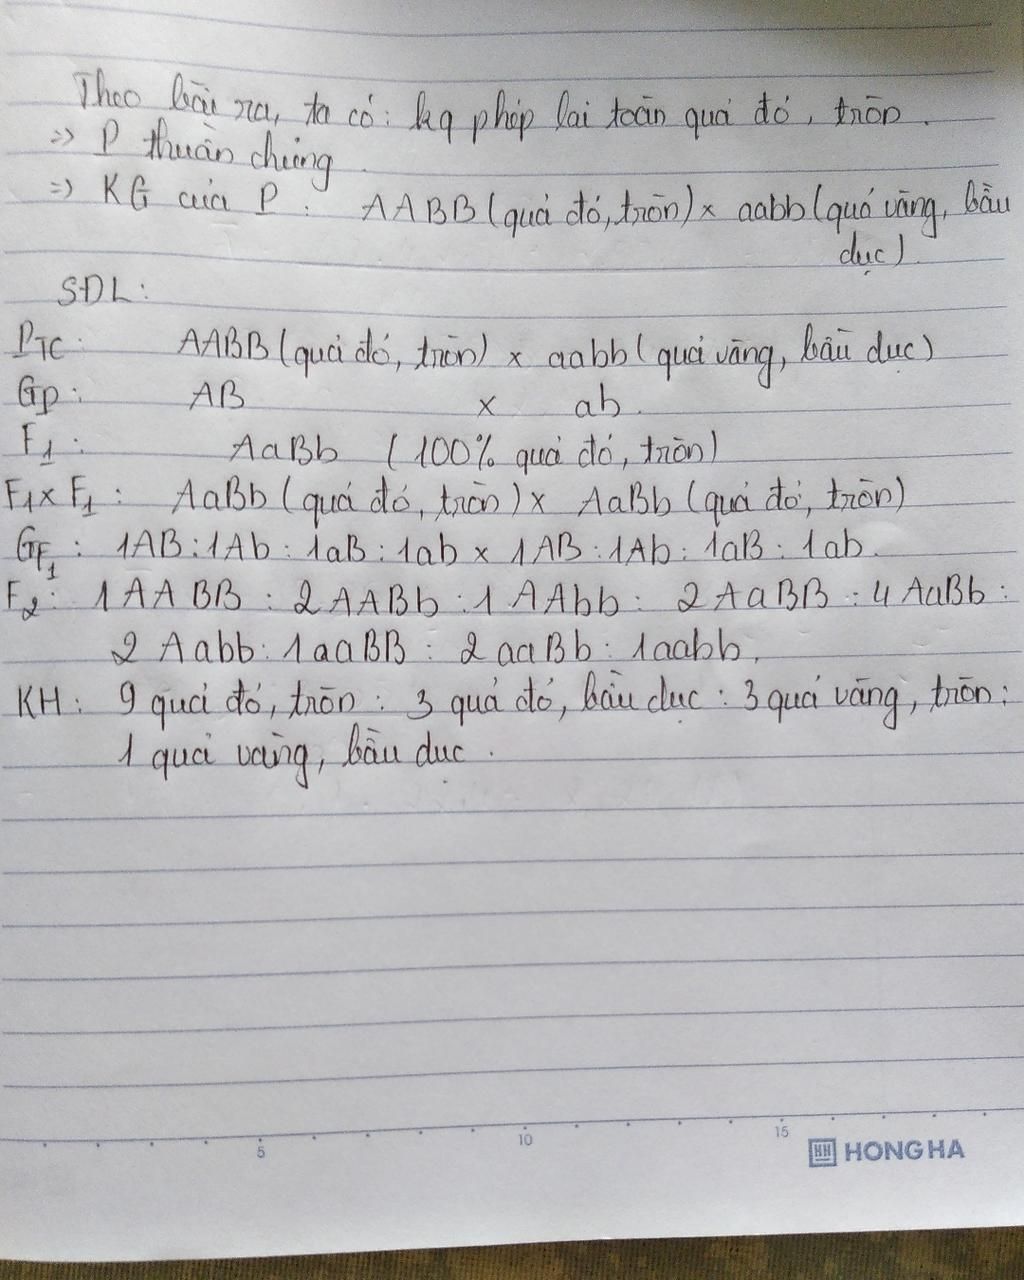 Theo bài ra, ta có: kq phép lai toàn quả đỏ, tròn.
=> P thuần chủng
=> KG của P: AABB (quả đỏ, tròn) x aabb (quả vàng, bầu
dục).
SĐL:
PTC: AABB (quả đỏ, tròn) x aabb (quả vàng, bầu dục)
Gp: AB x ab.
F1: AaBb (100% quả đỏ, tròn)
F1 x F1: AaBb (quả đỏ, tròn) x AaBb (quả đỏ, tròn)
GF1: 1AB : 1Ab : 1aB : 1ab x 1AB : 1Ab : 1aB : 1ab.
F2: 1 AABB : 2 AABb : 1 AAbb : 2 AaBB : 4 AaBb :
2 Aabb : 1aaBB : 2 aaBb : 1aabb.
KH: 9 quả đỏ, tròn : 3 quả đỏ, bầu dục : 3 quả vàng, tròn :
1 quả vàng, bầu dục.
5 10 15
HH HONG HA